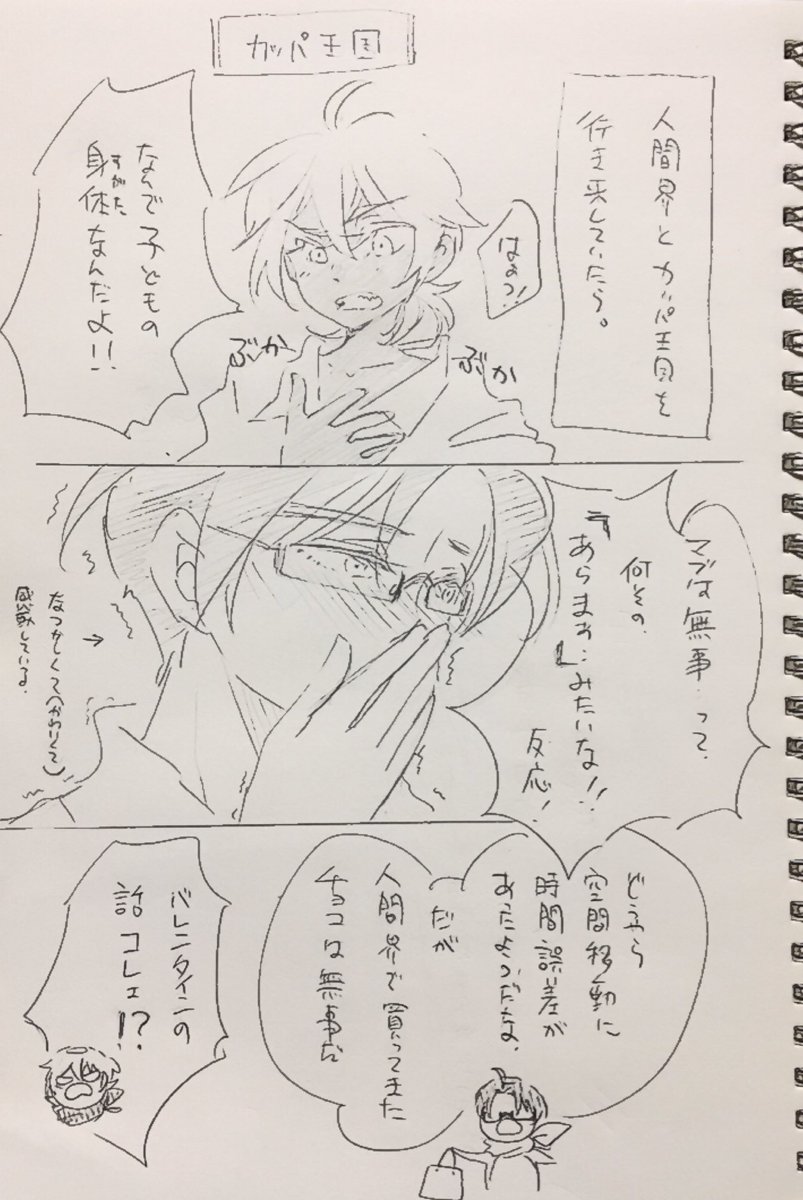 カッパ王国
人間界とカッパ王国を
行き来していたら。
はぁっ!
なんで子どもの
身体なんだよ!!
すがた
ぶか
ぶか
マブは無事‥って、
何その
「あらまぁ…」みたいな!!
反応!
→
なつかしくて(かわいくて)
感動している。
どうやら
空間移動に
時間誤差が
あったようだな、
だが
人間界で買ってきた
チョコは無事だ
バレンタインの
話コレェ!?